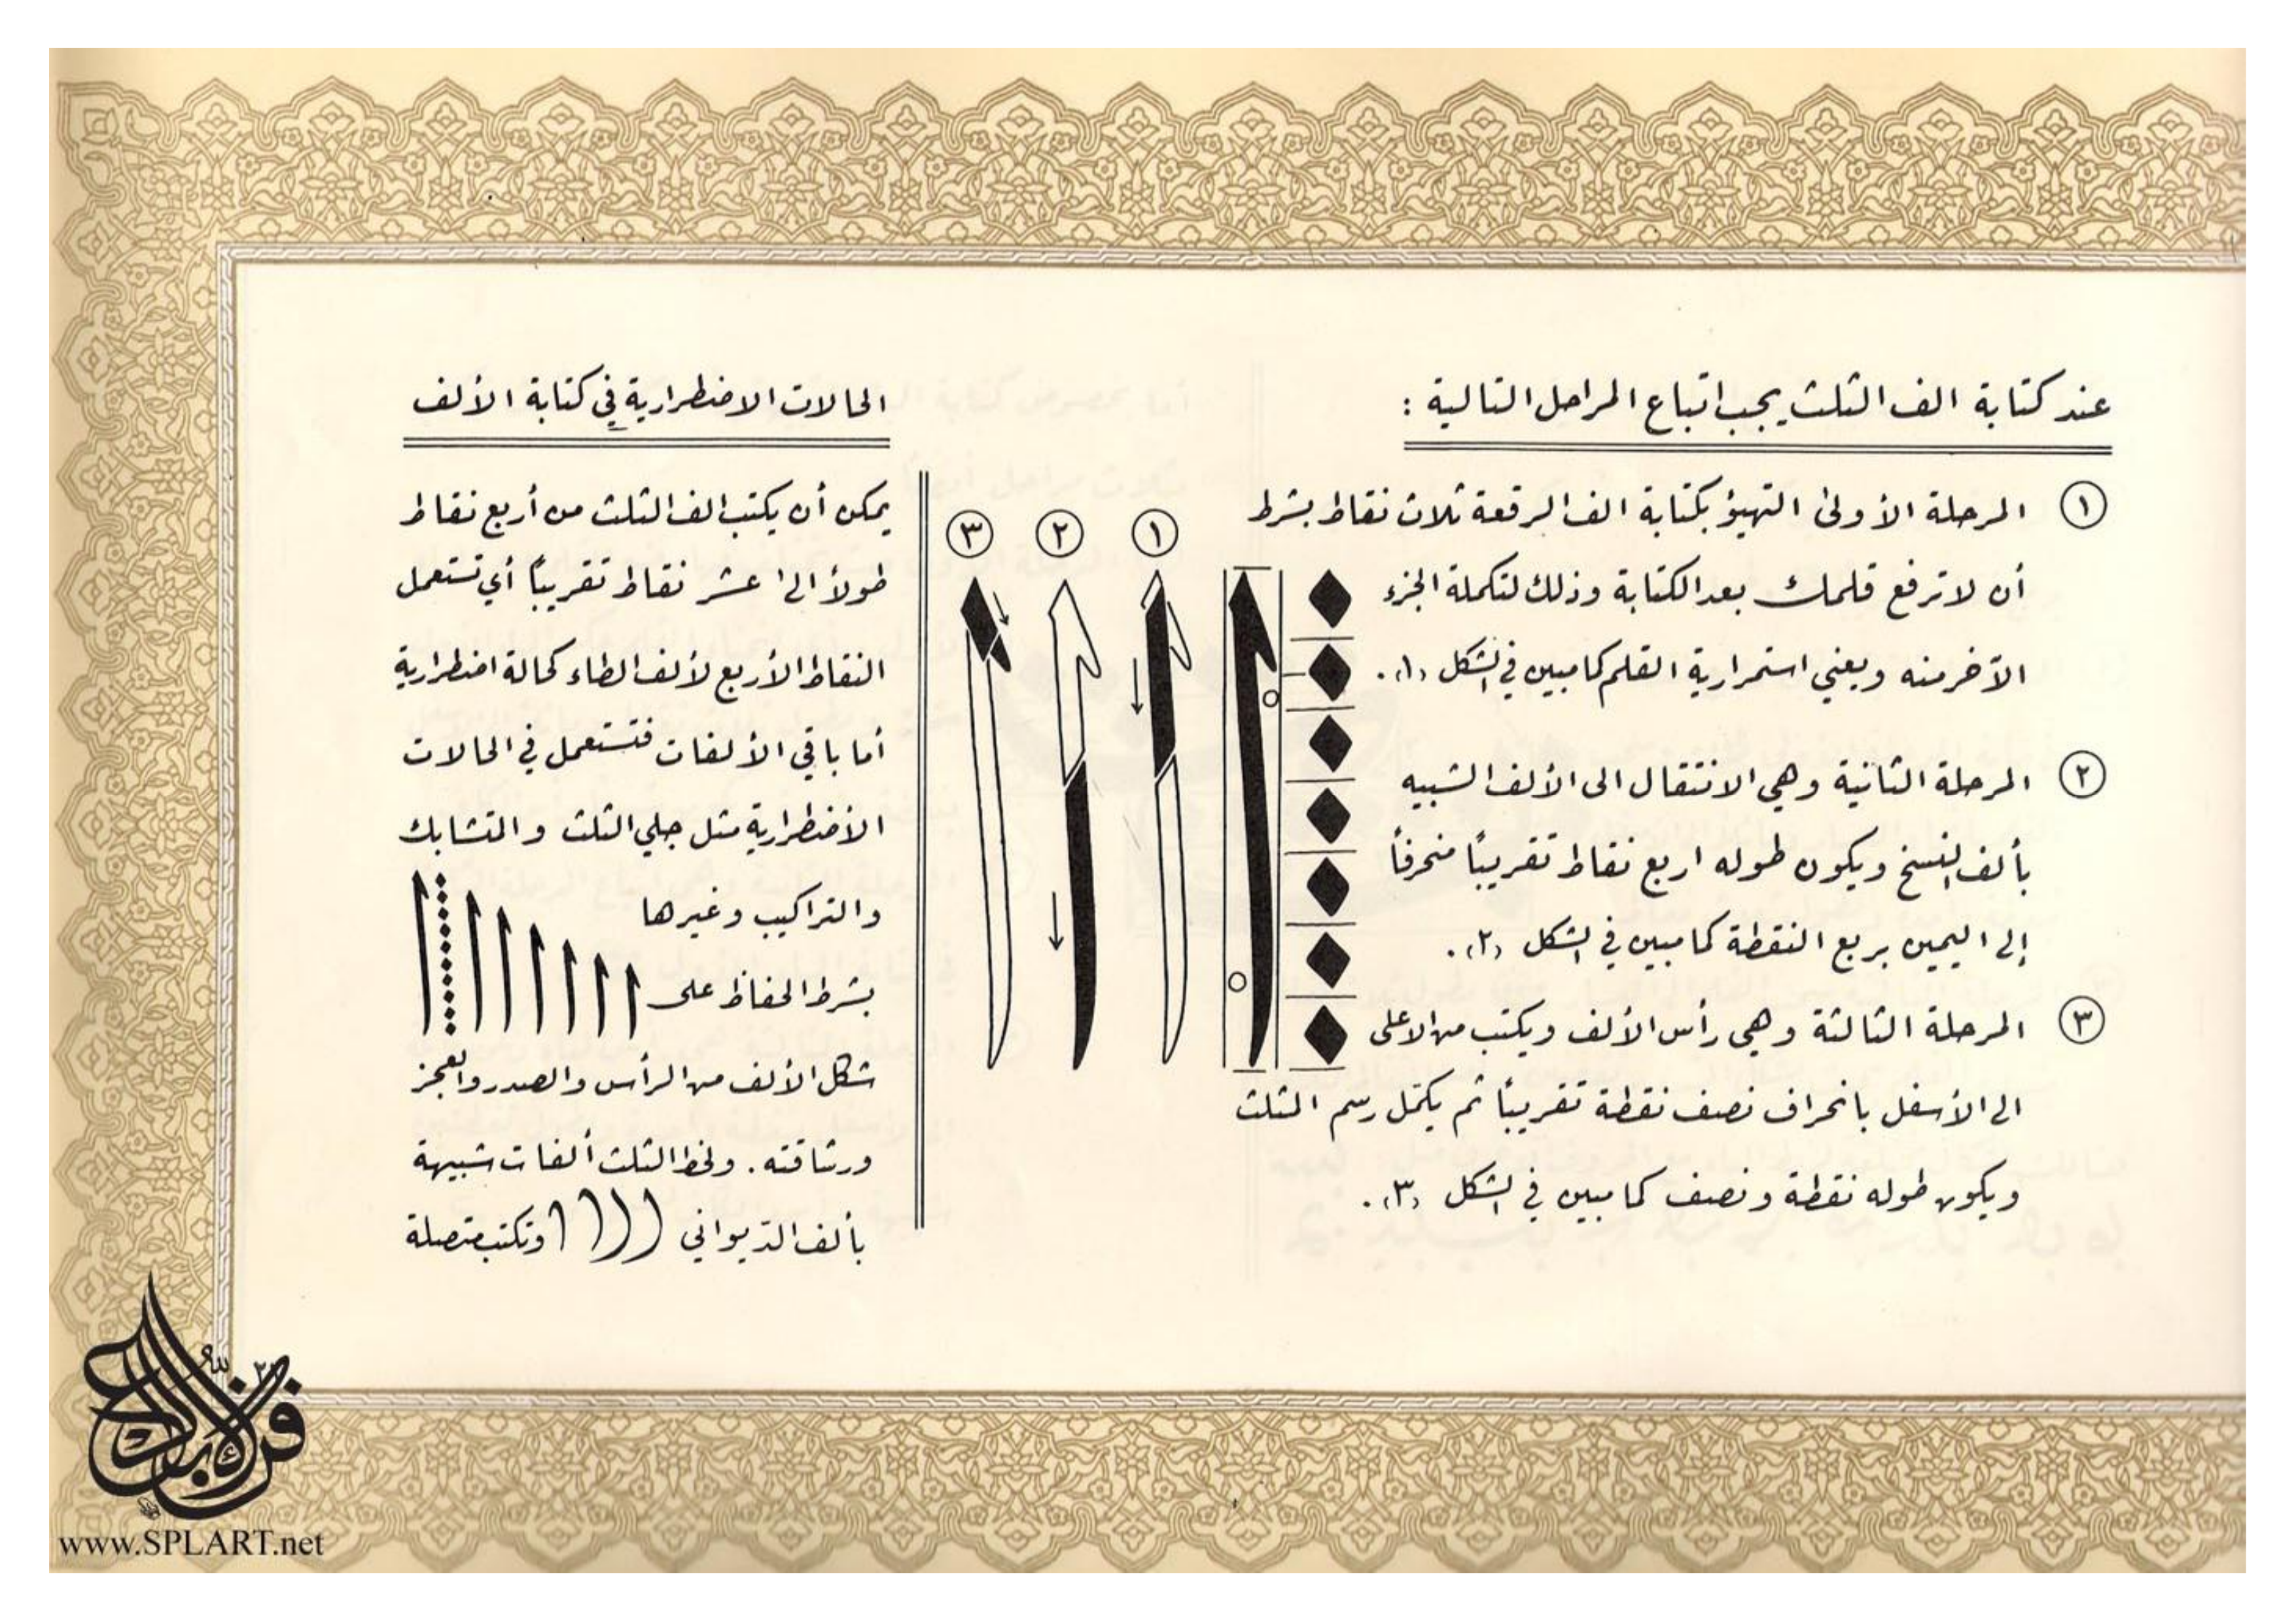 عند كتابة الف الثلث يجب اتباع المراحل التالية :
١ المرحلة الأولى التهيؤ بكتابة الف الرقعة ثلاث نقاط بشرط
أن لا ترفع قلمك بعد الكتابة وذلك لتكملة الجزء
الآخر منه ويعني استمرارية القلم كما مبين في الشكل (١).
٢ المرحلة الثانية وهي الانتقال الى الألف الشبيه
بألف النسخ ويكون طوله اربع نقاط تقريباً منحرفاً
إلى اليمين بربع النقطة كما مبين في الشكل (٢).
٣ المرحلة الثالثة وهي رأس الألف ويكتب من الاعلى
الى الأسفل بانحراف نصف نقطة تقريباً ثم يكمّل رسم المثلث
ويكون طوله نقطة ونصف كما مبين في الشكل (٣).
١ ٢ ٣
الحالات الاضطرارية في كتابة الألف
يمكن أن يكتب الف الثلث من أربع نقاط
طولاً الى عشر نقاط تقريباً أي تستعمل
النقاط الأربع لألف الطاء كحالة اضطرارية
أما باقي الألفات فتستعمل في الحالات
الأضطرارية مثل جلي الثلث و المتشابك
والتراكيب وغيرها
بشرط الحفاظ على
شكل الألف من الرأس والصدر والعجز
ورشاقته . ولخط الثلث ألفات شبيهة
بألف الديواني وتكتب متصلة
www.SPLART.net